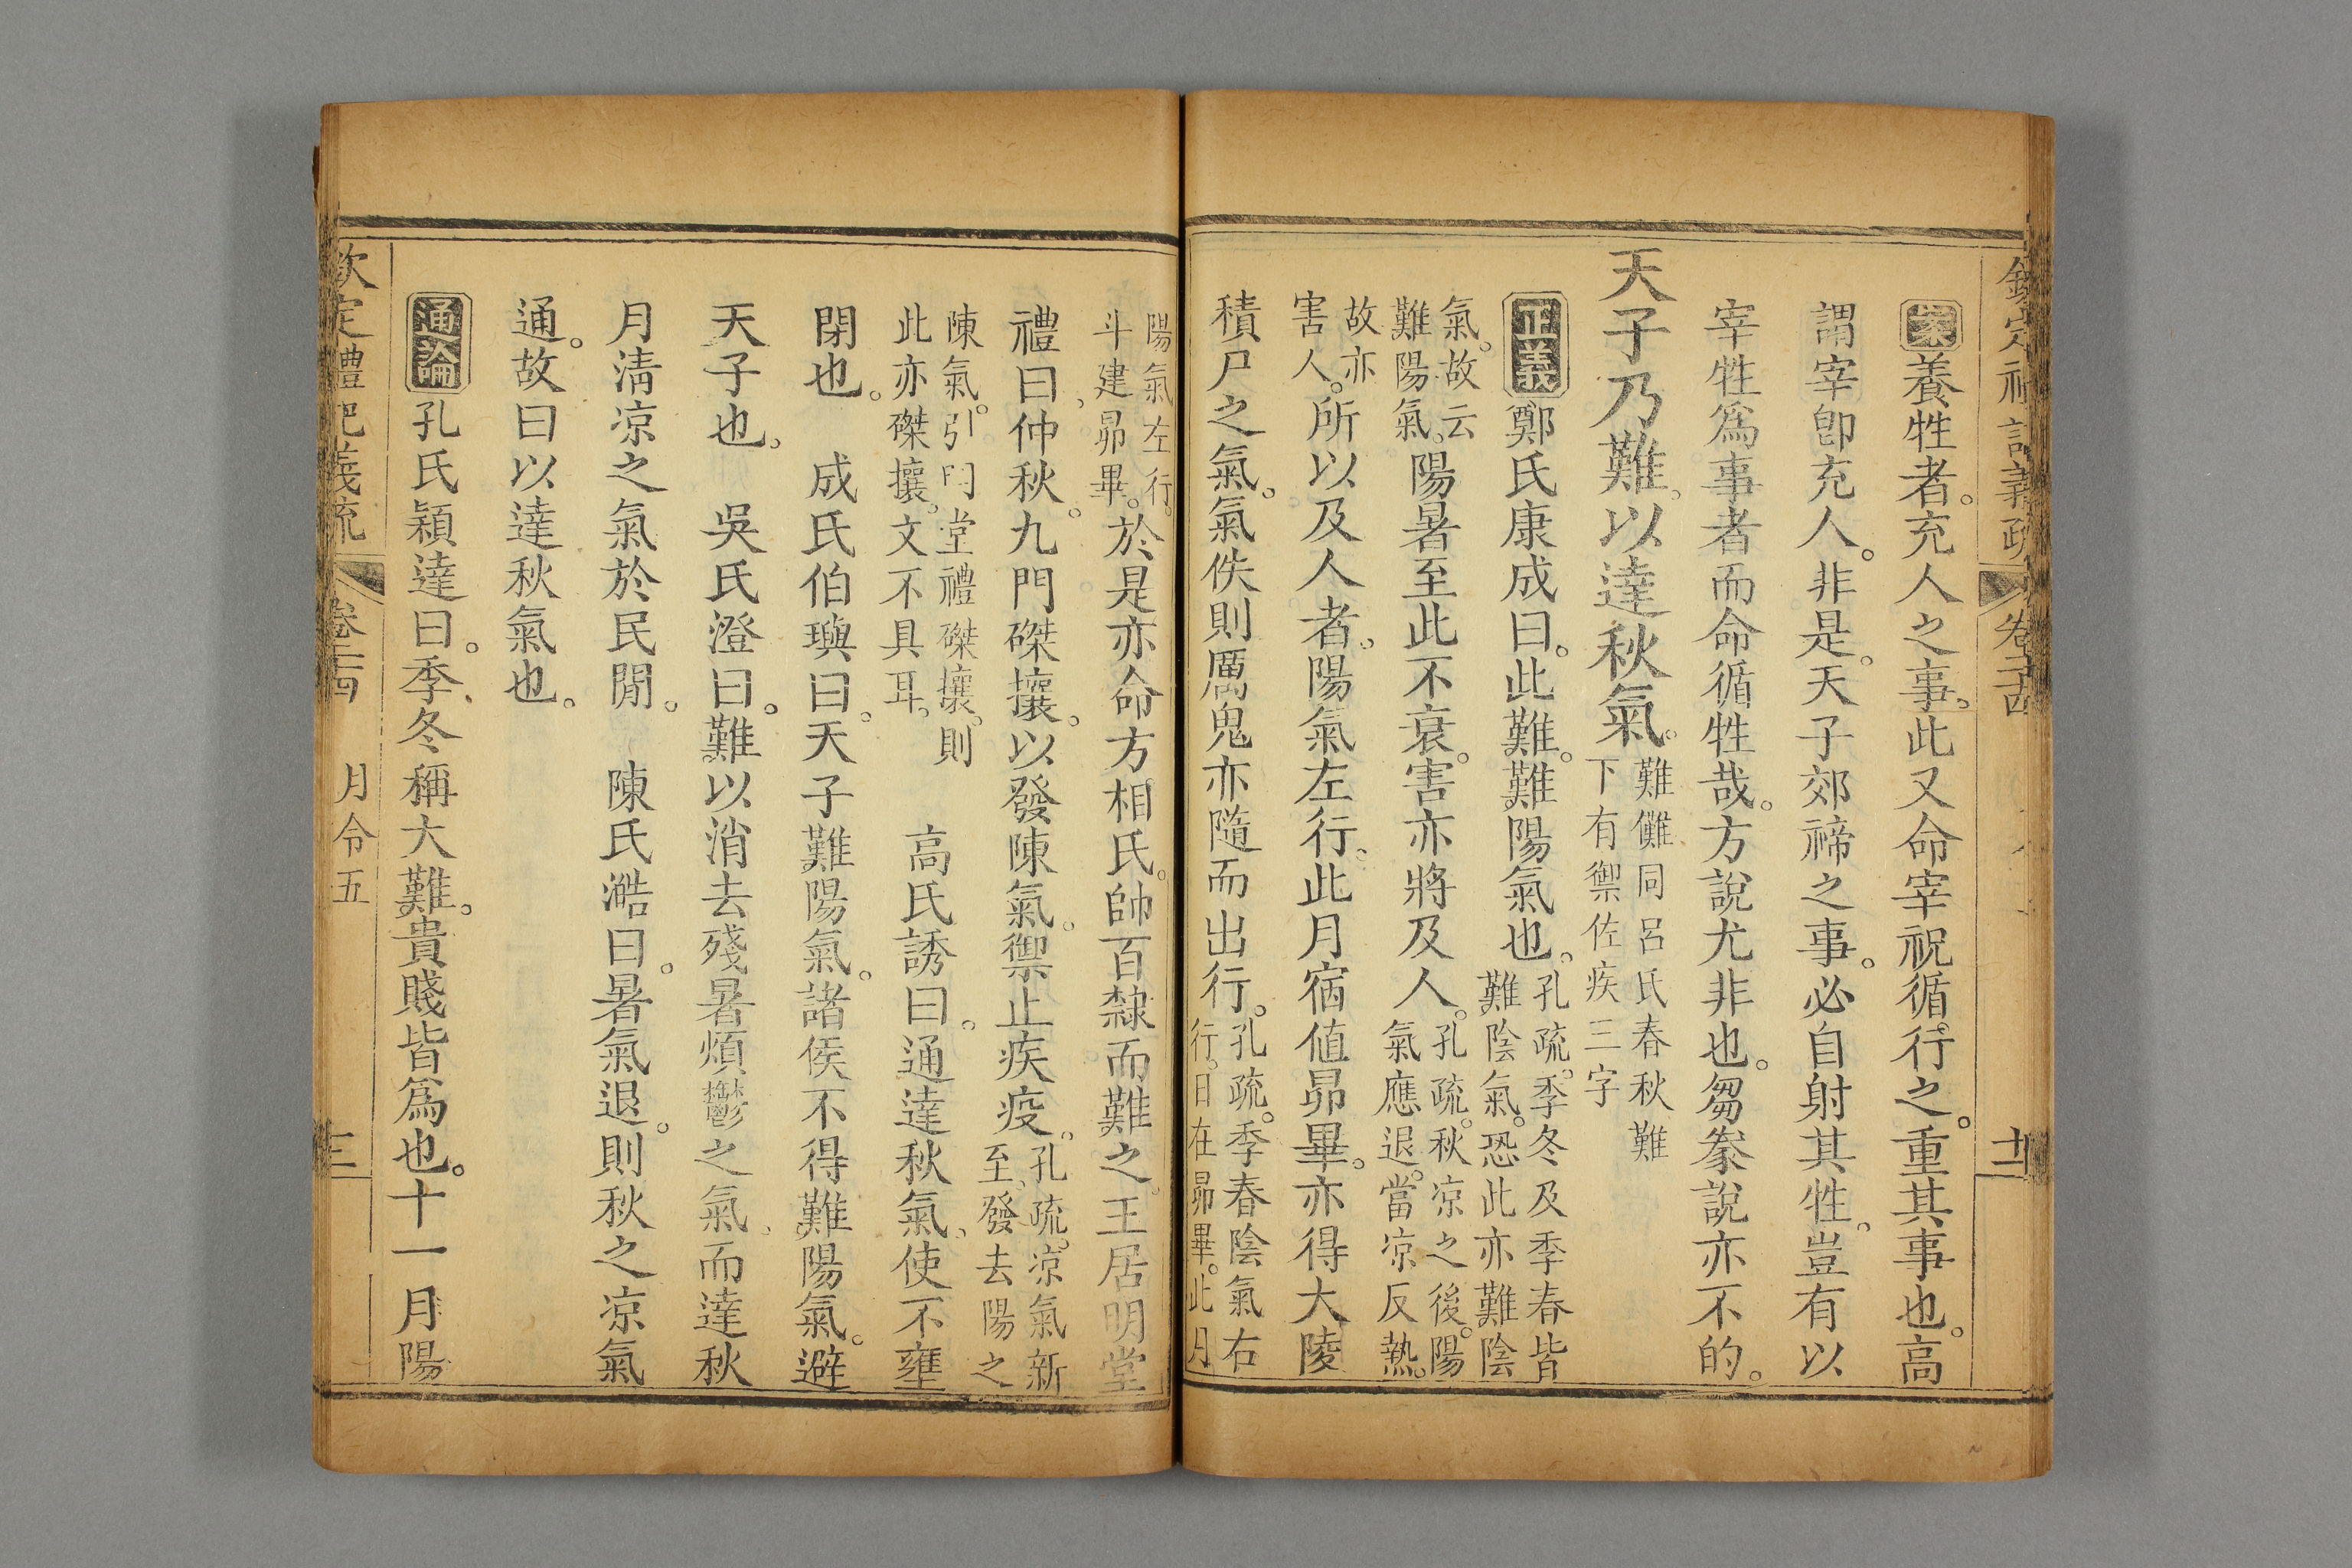 案養牲者。充人之事。此又命宰祝循行之。重其事也。高
謂宰卽充人。非是。天子郊禘之事。必自射其牲。豈有以
宰牲爲事者而命循牲哉。方說尤非也。芻豢說亦不的。
天子乃難。以達秋氣。難儺同呂氏春秋難
下有禦佐疾三字
正義鄭氏康成曰。此難。難陽氣也。孔疏。季冬及季春皆
難陰氣。恐此亦難陰
氣。故云
難陽氣。陽暑至此不衰。害亦將及人。孔疏。秋凉之後。陽
氣應退。當凉反熱。
故亦
害人。所以及人者。陽氣左行。此月宿値昴畢。亦得大陵
積尸之氣。氣佚則厲鬼亦隨而出行。孔疏。季春陰氣右
行。日在昴畢。此月
陽氣左行。
斗建昴畢。於是亦命方相氏。帥百隸而難之。王居明堂
禮曰、仲秋。九門磔攘。以發陳氣。禦止疾疫。孔疏。凉氣新
至。發去陽之
陳氣。引明堂禮磔攘。則
此亦磔攘。文不具耳。 高氏誘曰。通達秋氣。使不壅
閉也。 成氏伯璵曰。天子難陽氣。諸侯不得難陽氣。避
天子也。 吳氏澄曰。難以消去殘暑煩鬱之氣。而達秋
月淸凉之氣於民閒。 陳氏澔曰。暑氣退。則秋之凉氣
通。故曰以達秋氣也。
通論孔氏穎達曰。季冬稱大難。貴賤皆爲也。十一月陽
欽定禮記義疏
卷二十四 月令五